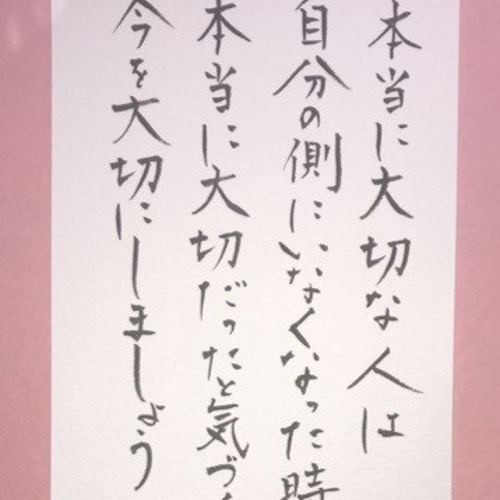 本当に大切な人は
自分の側にいなくなった時
本当に大切だったと気づく
今を大切にしましょう